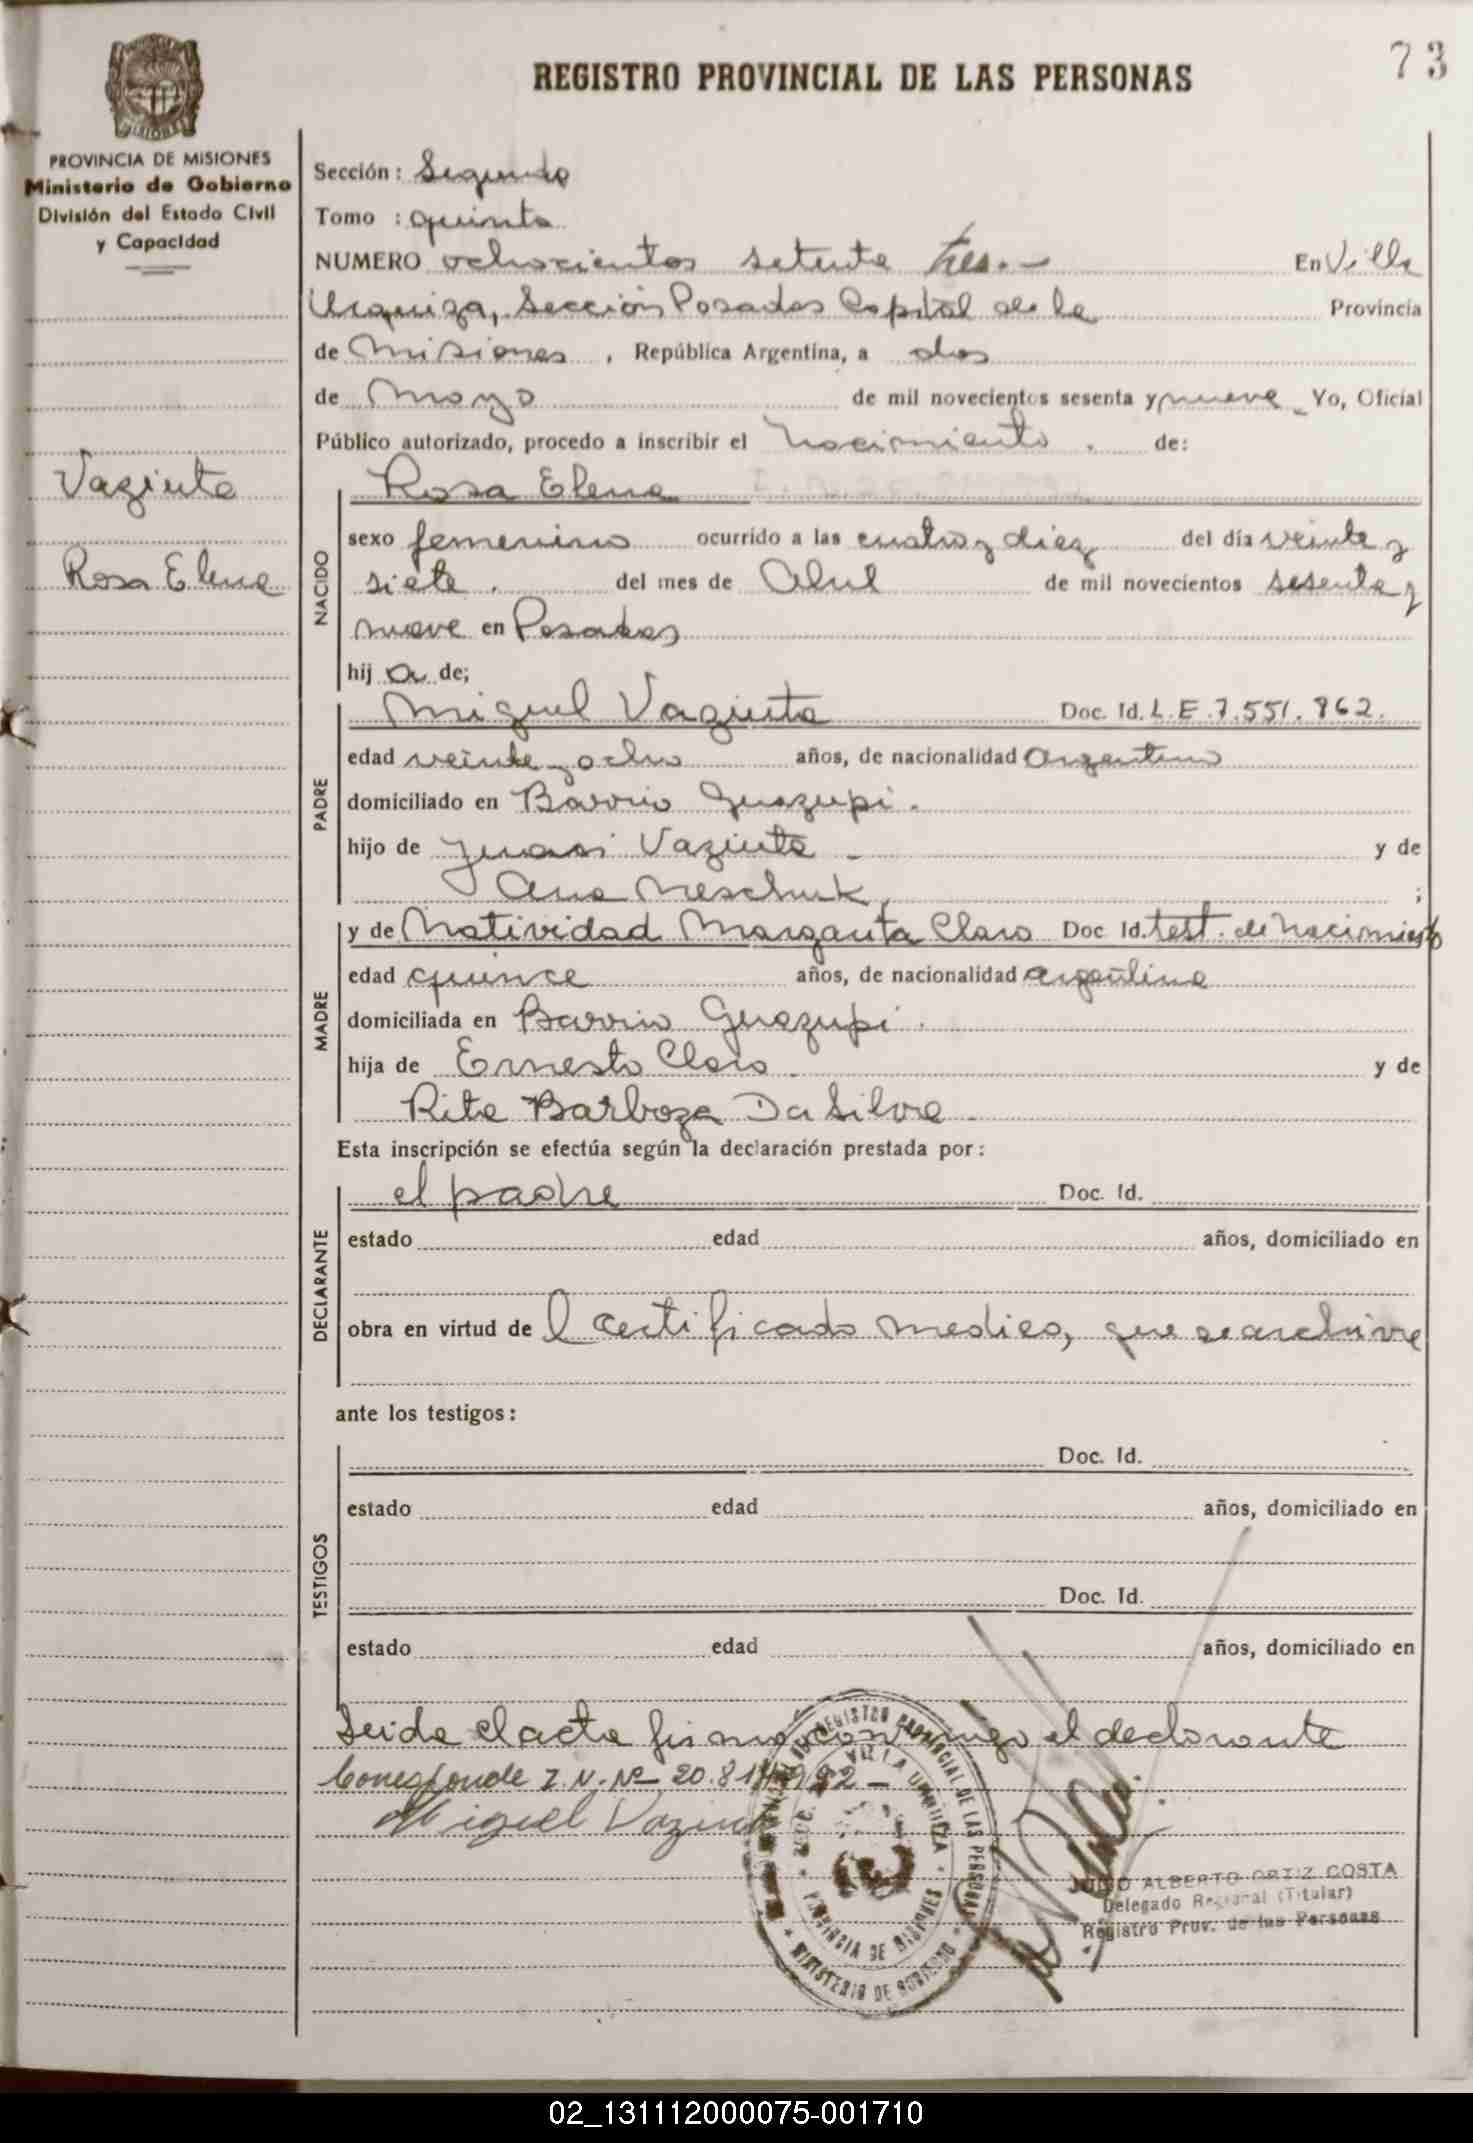 73
REGISTRO PROVINCIAL DE LAS PERSONAS
MISIONES
PROVINCIA DE MISIONES
Ministerio de Gobierno
División del Estado Civil
y Capacidad
Sección: Segundo
Tomo : quinto
NUMERO ochocientos setenta tres.- En Villa
Urquiza, Sección Posadas Capital de la Provincia
de Misiones, República Argentina, a dos
de Mayo de mil novecientos sesenta y nueve Yo, Oficial
Público autorizado, procedo a inscribir el Nacimiento. de:
Vaziuta
Rosa Elena
NACIDO
Rosa Elena
sexo femenino ocurrido a las cuatro y diez del día veinte y
siete. del mes de Abril de mil novecientos sesenta y
nueve en Posadas
hij a de;
PADRE
Miguel Vaziuta Doc. Id. L.E.7.551.862.
edad veinte y ocho años, de nacionalidad Argentino
domiciliado en Barrio Guazupi.
hijo de Juan Vaziuta y de
Ana Meschuk ;
MADRE
y de Natividad Margarita Claro Doc Id. test. de nacimiento
edad quince años, de nacionalidad argentina
domiciliada en Barrio Guazupi.
hija de Ernesto Claro y de
Rita Barboza Da Silva
Esta inscripción se efectúa según la declaración prestada por:
DECLARANTE
el padre Doc. Id.
estado edad años, domiciliado en
obra en virtud de l certificado medico, que se archiva
ante los testigos:
TESTIGOS
Doc. Id.
estado edad años, domiciliado en
Doc. Id.
estado edad años, domiciliado en
Leida el acta firma conmigo el declarante
Corresponde I.N. Nº 20.81
Miguel Vaziuta
REGISTRO PROVINCIAL DE LAS PERSONAS
VILLA URQUIZA
PROVINCIA DE MISIONES
MINISTERIO DE GOBIERNO
JULIO ALBERTO ORTIZ COSTA
Delegado Regional (Titular)
Registro Prov. de las Personas
02_131112000075-001710